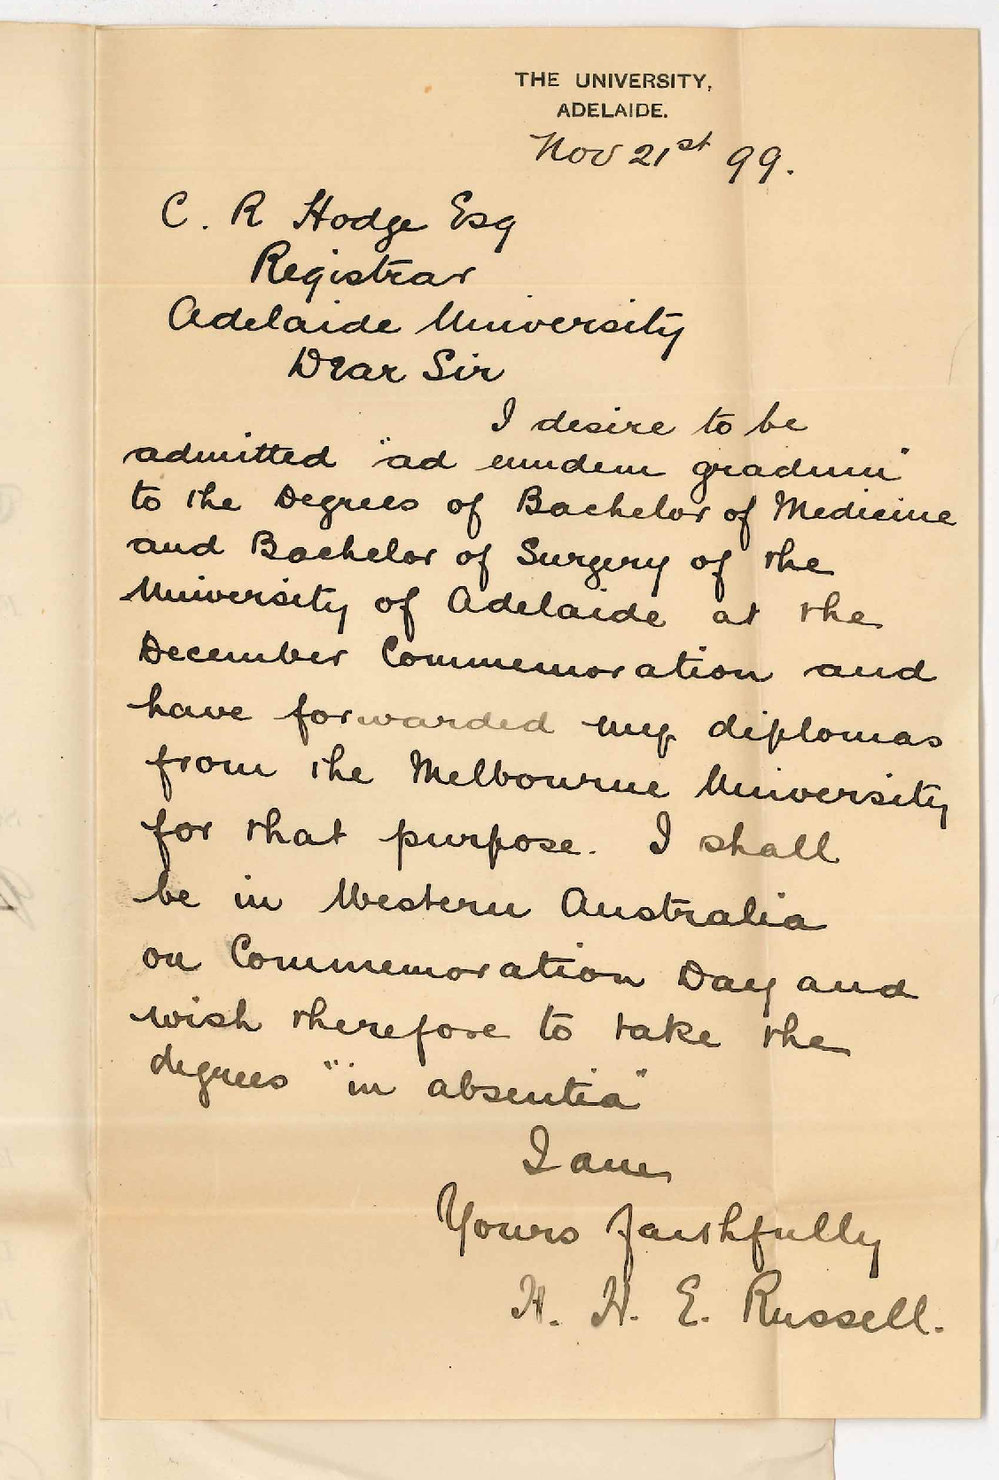 THE UNIVERSITY,
ADELAIDE.
Nov 21st 99.
C. R Hodge Esq
Registrar
Adelaide University
Dear Sir
I desire to be
admitted "ad eundem gradum"
to the Degrees of Bachelor of Medicine
and Bachelor of Surgery of the
University of Adelaide at the
December Commemoration and
have forwarded my diplomas
from the Melbourne University
for that purpose. I shall
be in Western Australia
on Commemoration Day and
wish therefore to take the
degrees "in absentia"
I am
Yours faithfully
H. H. E. Russell.